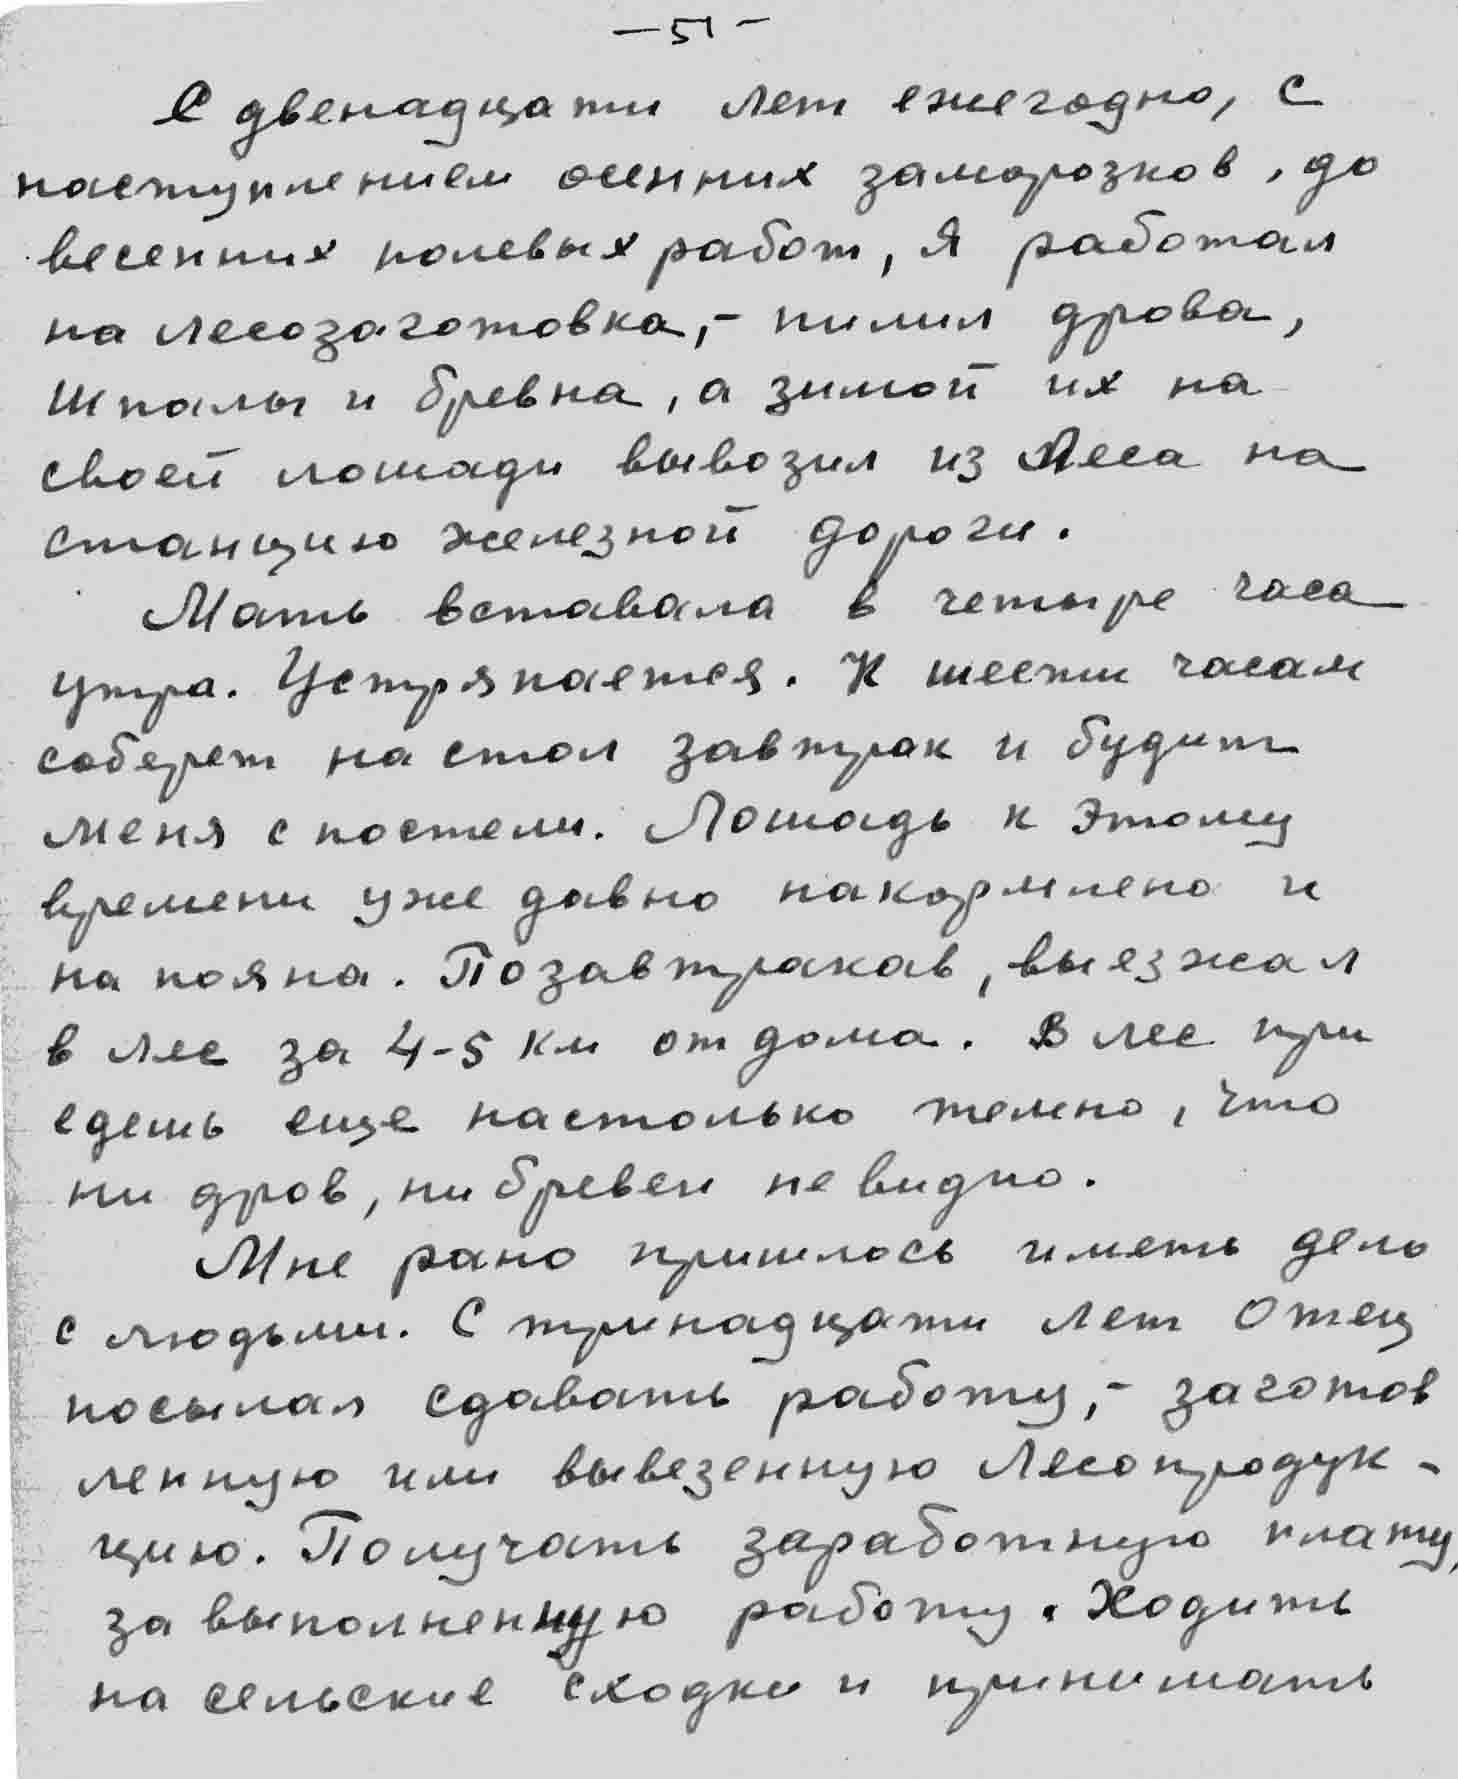 – 51 –
С двенадцати лет ежегодно, с
наступлением осенних заморозков, до
весенних полевых работ, я работал
на лесозаготовка,- пилил дрова,
шпалы и бревна, а зимой их на
своей лошади вывозил из леса на
станцию железной дороги.
Мать вставала в четыре часа
утра. Устряпается. К шести часам
соберет на стол завтрак и будит
меня с постели. Лошадь к этому
времени уже давно накормлена и
напояна. Позавтракав, выезжал
в лес за 4-5 км от дома. В лес при
едешь еще настолько темно, что
ни дров, ни бревен не видно.
Мне рано пришлось иметь дело
с людьми. С тринадцати лет Отец
посылал сдавать работу,- заготов
ленную или вывезенную лесопродук-
цию. Получать заработную плату,
за выполненную работу. Ходить
на сельские сходки и принимать